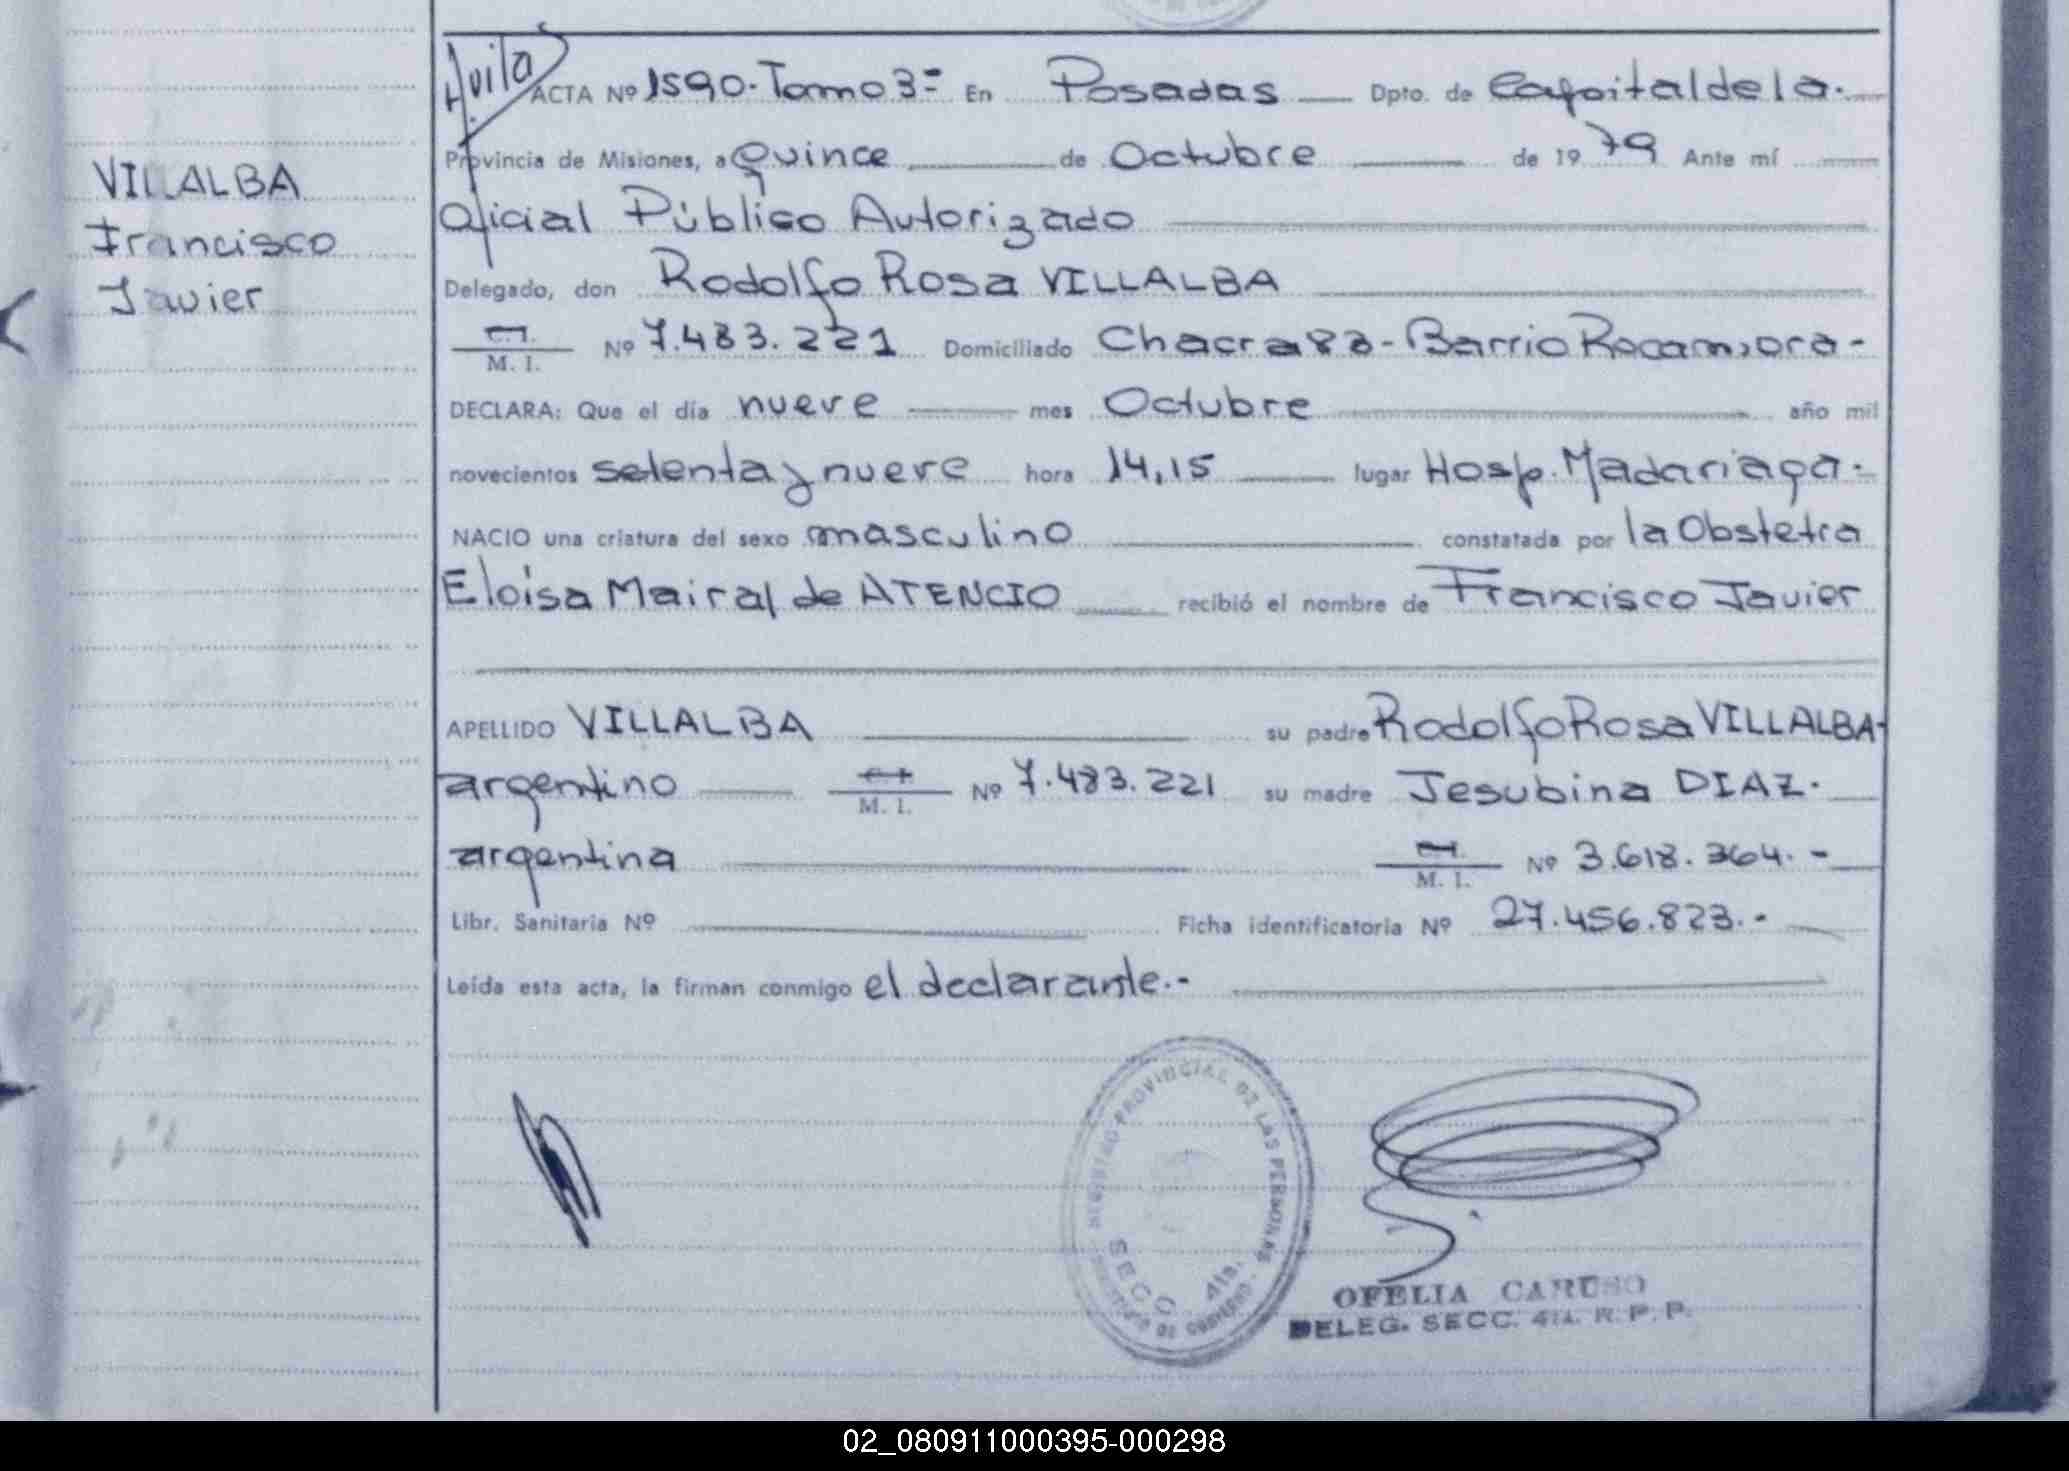 Avila
ACTA Nº 1590. Tomo 3º En Posadas Dpto. de Capital de la.
Provincia de Misiones, a Quince de Octubre de 1979 Ante mí
VILLALBA
Oficial Público Autorizado
Francisco
Delegado, don Rodolfo Rosa VILLALBA
Javier
C. I.
M. I. Nº 7.483.221 Domiciliado Chacra 82 - Barrio Rocamora -
DECLARA: Que el día nueve mes Octubre año mil
novecientos setenta y nueve hora 14,15 lugar Hosp. Madariaga.
NACIO una criatura del sexo masculino constatada por la Obstetra
Eloisa Mairal de ATENCIO recibió el nombre de Francisco Javier
APELLIDO VILLALBA su padre Rodolfo Rosa VILLALBA-
argentino C. I. M. I. Nº 7.483.221 su madre Jesubina DIAZ.
argentina C. I. M. I. Nº 3.618.364. -
Libr. Sanitaria Nº Ficha identificatoria Nº 27.456.823. -
Leída esta acta, la firman conmigo el declarante. -
REGISTRO PROVINCIAL DE LAS PERSONAS
SECC. 4ta.
OFELIA CARUSO
DELEG. SECC. 4ta. R. P. P.
02_080911000395-000298